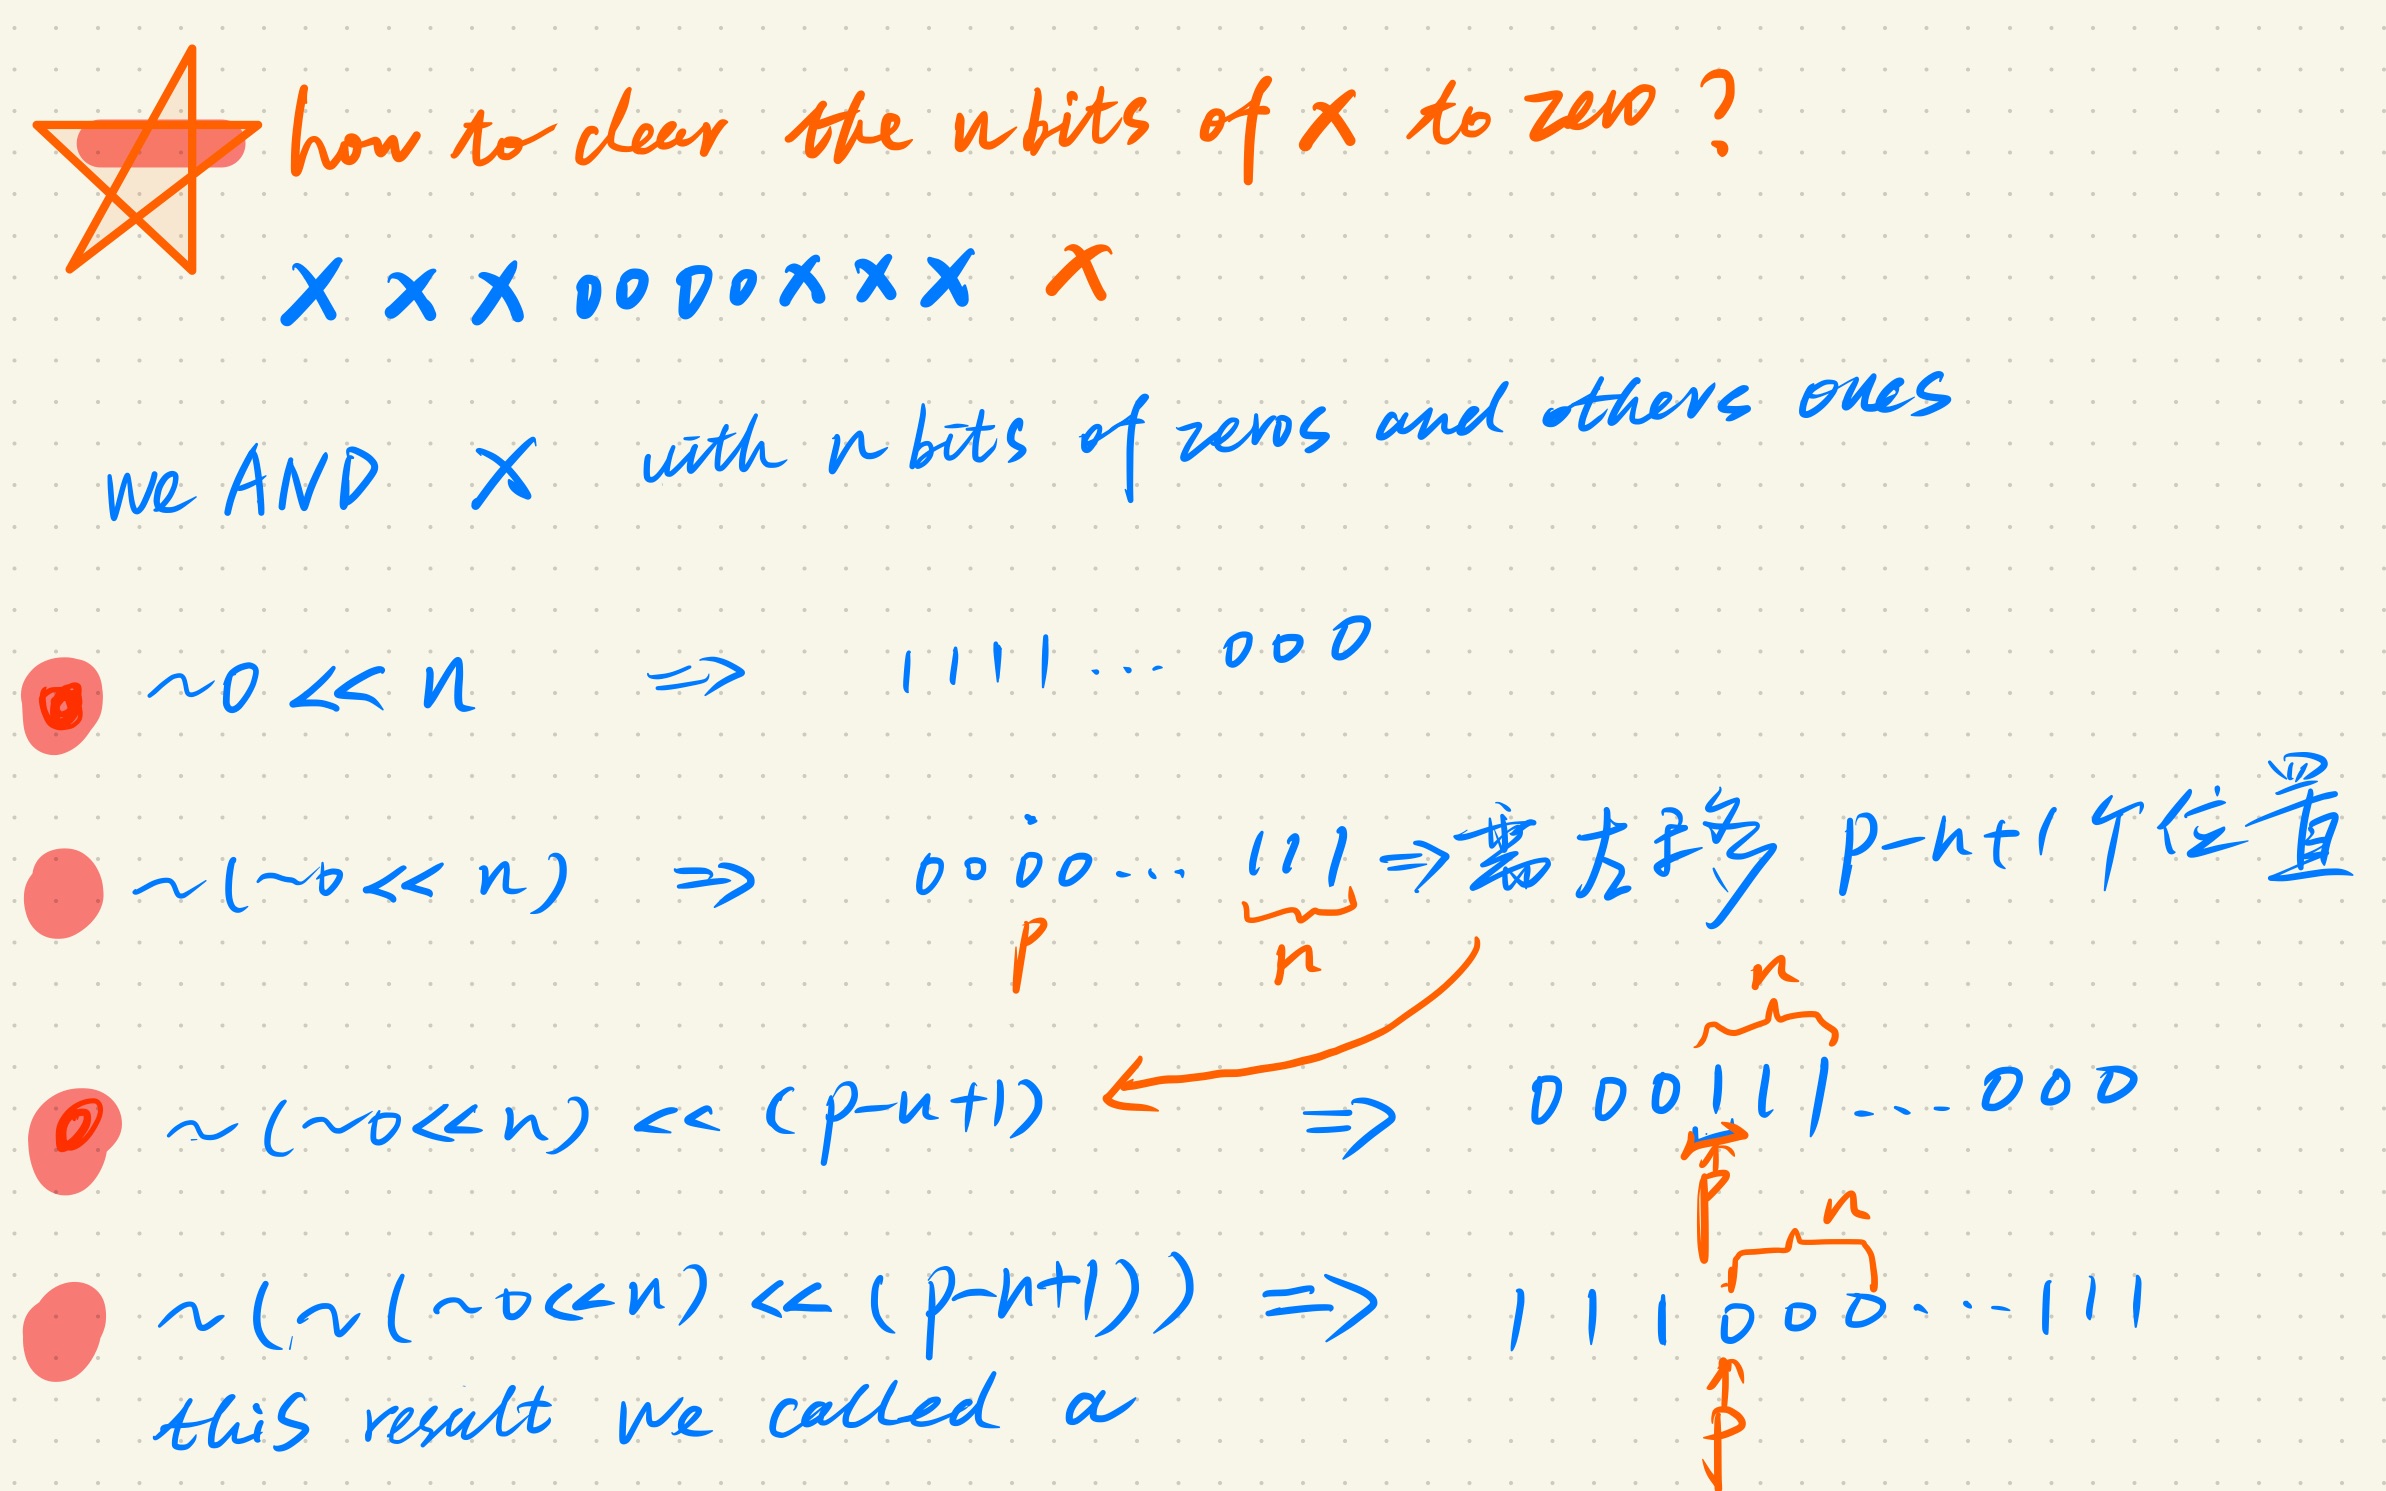 how to clear the n bits of x to zero ?
x x x 0 0 0 0 x x x x
we AND x with n bits of zeros and others ones
~0 << n ⇒ 1 1 1 1 ... 0 0 0
~(~0 << n) ⇒ 0 0 0 0 ... 1 1 1 ⇒ 左移 p-n+1 个位置
p n
n
~(~0 << n) << (p-n+1) ⇒ 0 0 0 1 1 1 ... 0 0 0
p
n
~(~(~0 << n) << (p-n+1)) ⇒ 1 1 1 0 0 0 ... 1 1 1
this result we called a
p